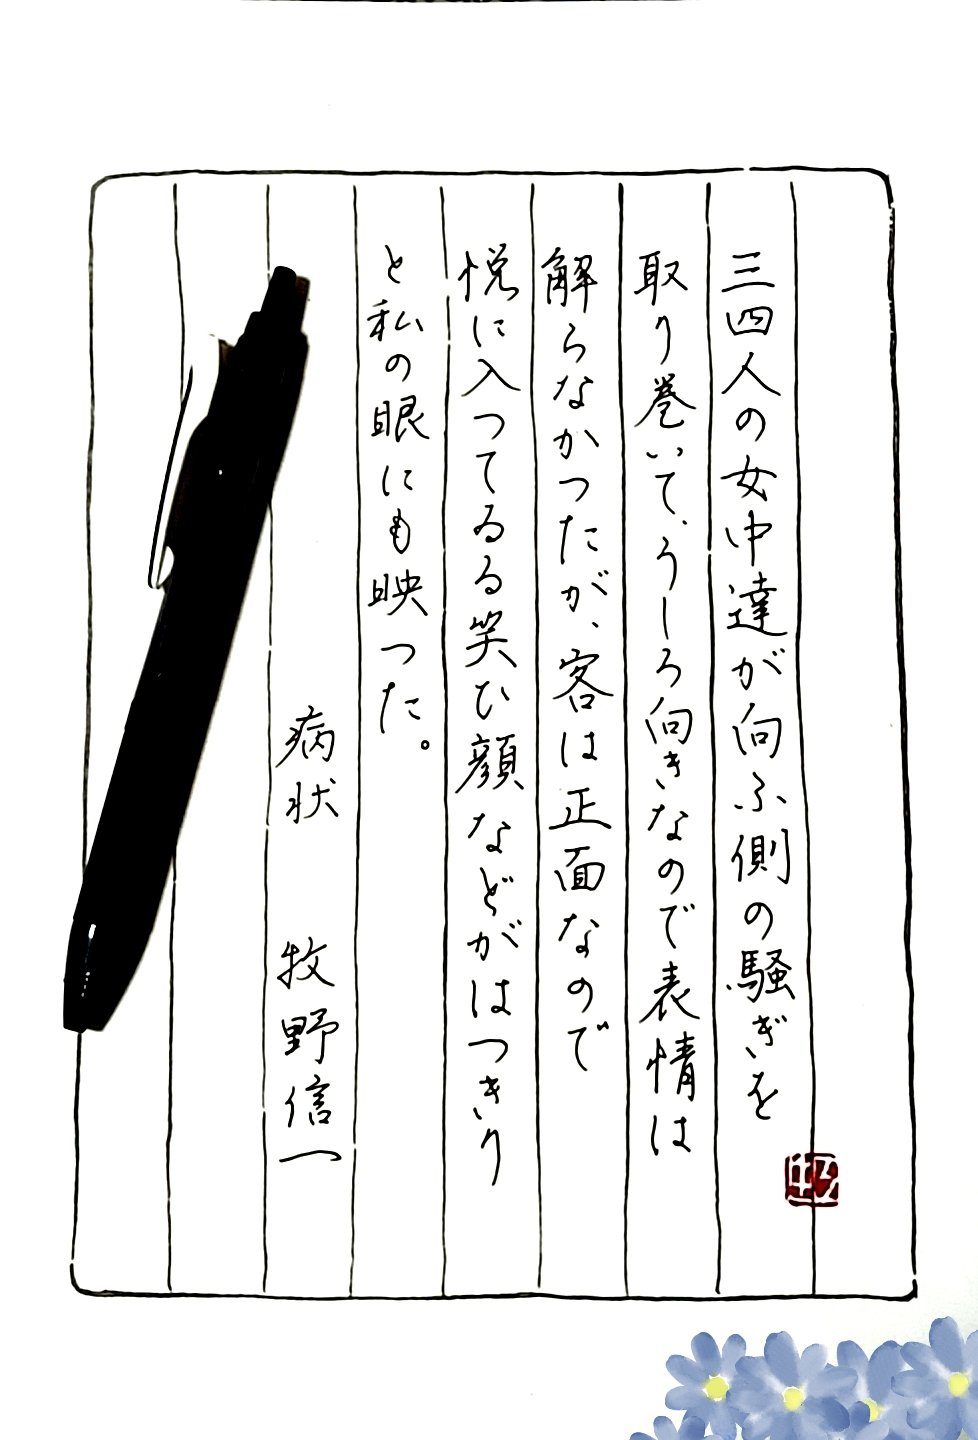 三四人の女中達が向ふ側の騒ぎを
取り巻いて、うしろ向きなので表情は
解らなかつたが、客は正面なので
悦に入つてゐる笑ひ顔などがはつきり
と私の眼にも映つた。
病状 牧野信一